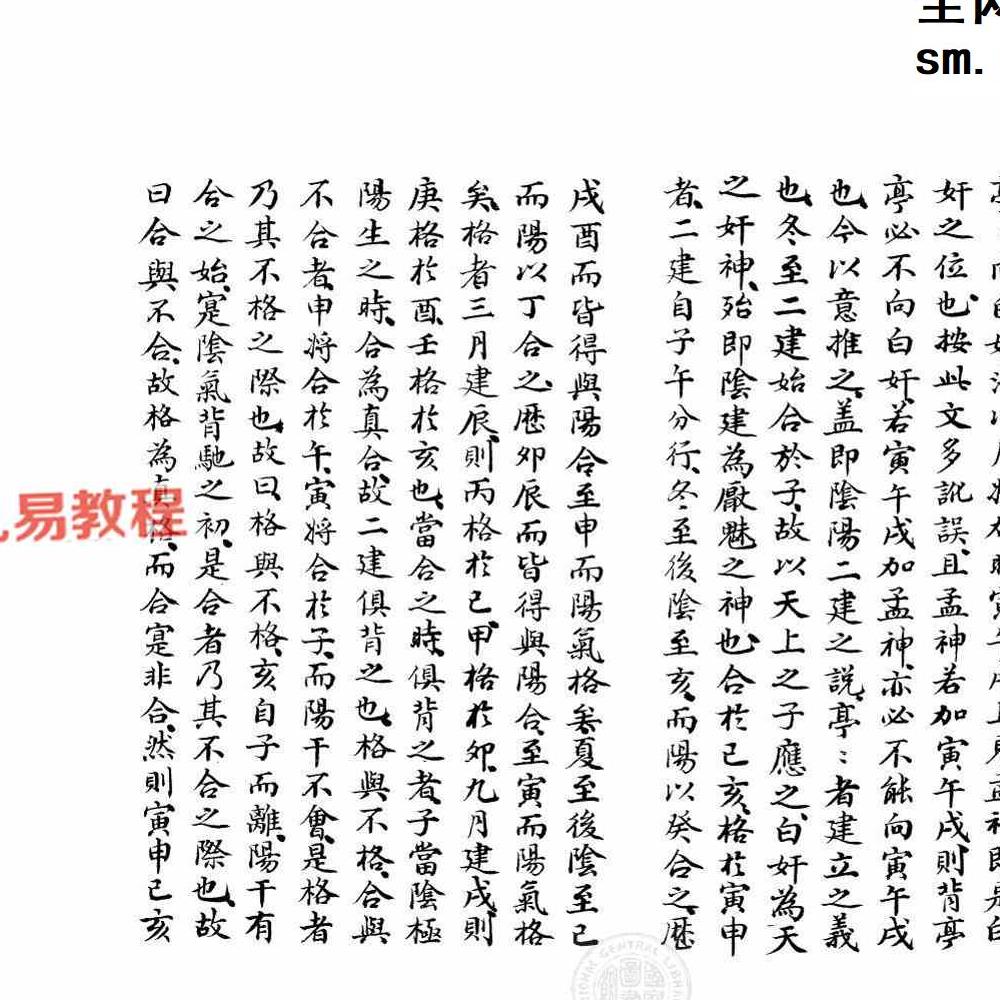 sm.
奸之位也按此文多訛誤且孟神若加寅午戌則背亭
亭必不向白奸若寅午戌加孟神亦必不能向寅午戌
也今以意推之盖即陰陽二建之說亭〻者建立之義
也冬至二建始合於子故以天上之子應之白奸為天
之奸神殆即陰建為厭魅之神也合於巳亥格於寅申
者二建自子午分行冬至後陰至亥而陽以癸合之歷
戌酉而皆得與陽合至申而陽氣格矣夏至後陰至巳
而陽以丁合之歷卯辰而皆得與陽合至寅而陽氣格
矣格者三月建辰則丙格於己甲格於卯九月建戌則
庚格於酉壬格於亥也當合之時俱背之者子當陰極
陽生之時合為真合故二建俱背之也格與不格合與
不合者申將合於午寅將合於子而陽干不會是格者
乃其不格之際也故曰格與不格亥自子而離陽干有
合之始寔陰氣背馳之初是合者乃其不合之際也故
曰合與不合故格為真格而合寔非合然則寅申已亥
易教程